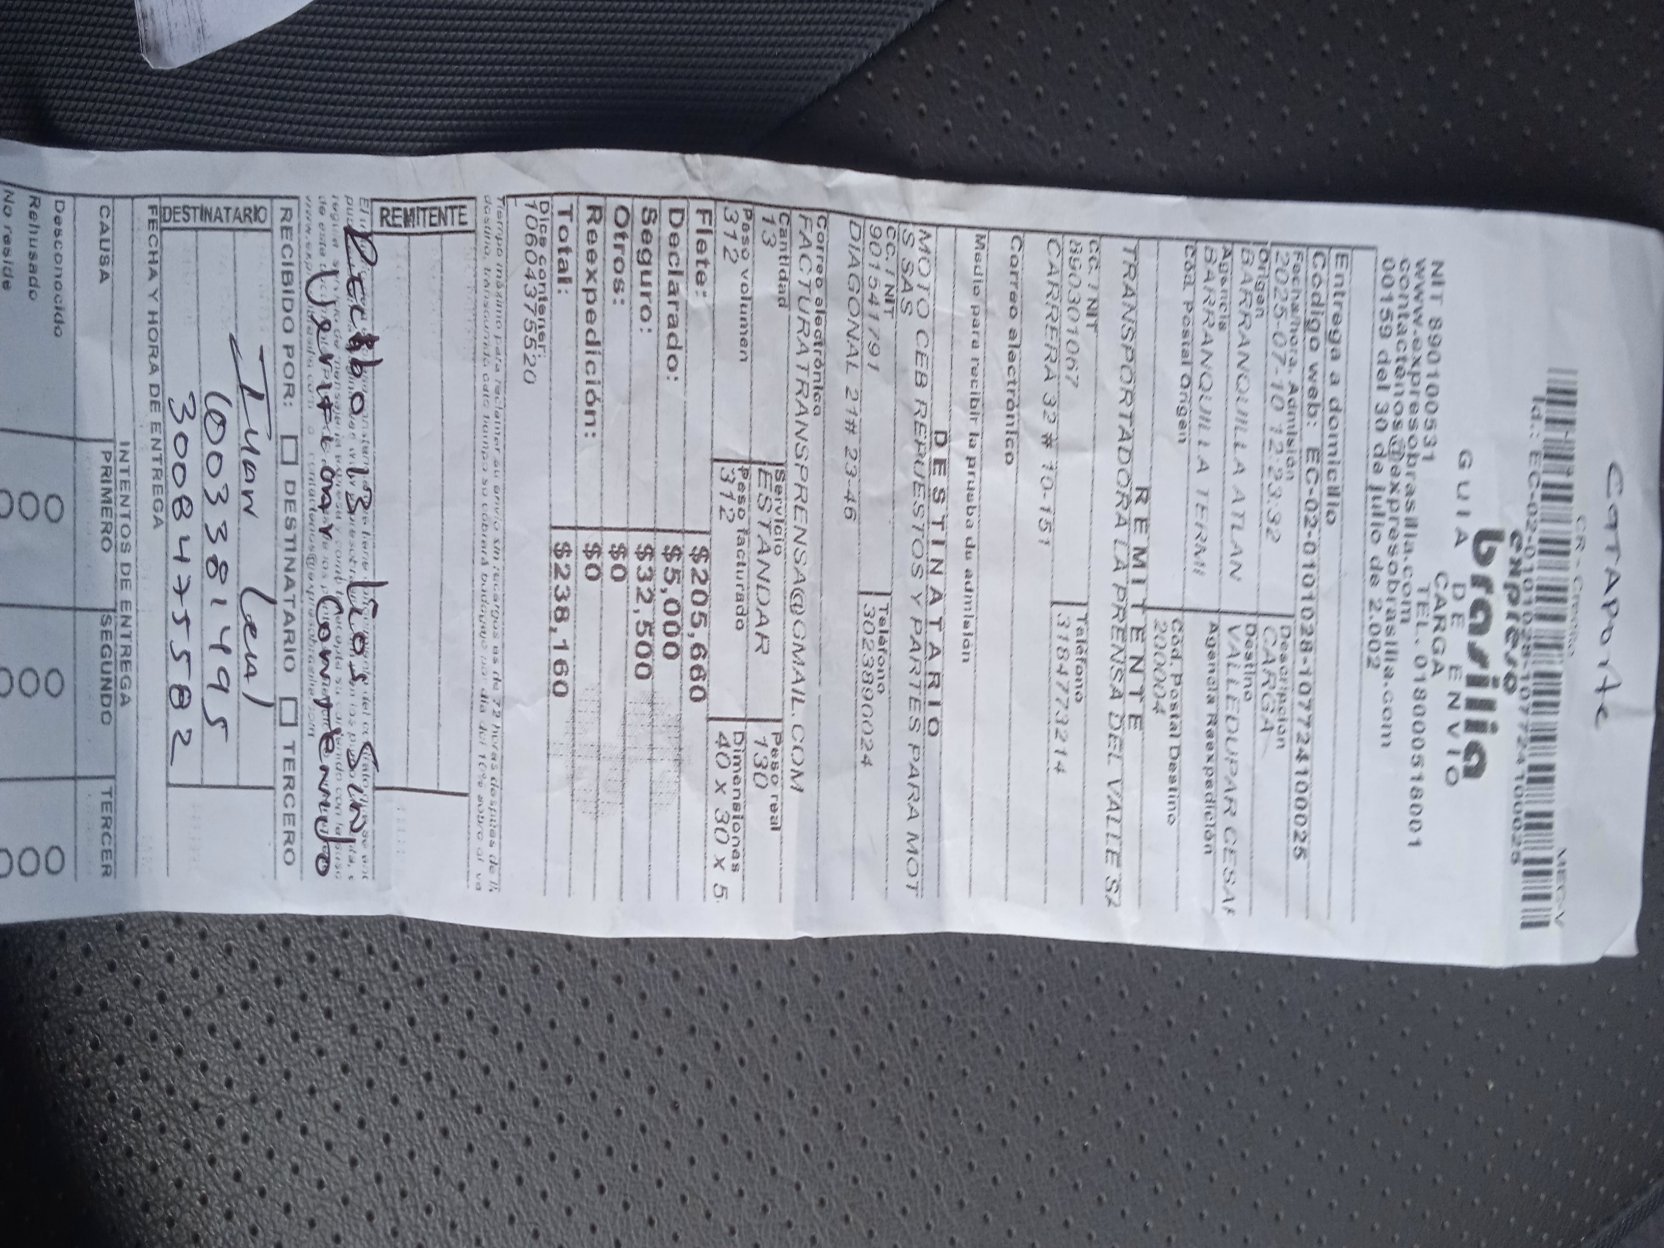 CATAPORTE
Id.: EC-02-0101028-1077724100025
expreso
brasilia
GUIA DE ENVIO
CARGA
NIT 890100531 TEL. 018000518001
www.expresobrasilia.com
contactenos@expresobrasilia.com
00159 del 30 de julio de 2.002
Entrega a domicilio
Código web: EC-02-0101028-1077724100025
Fecha/hora. Admisión Descripción
2025-07-10 12:23:32 CARGA
Origen Destino
BARRANQUILLA ATLAN VALLEDUPAR CESAR
Agencia Agencia Reexpedición
BARRANQUILLA TERMI
Cód. Postal Origen Cód. Postal Destino
200004
REMITENTE
TRANSPORTADORA LA PRENSA DEL VALLE SA
CC. / NIT Teléfono
890301067 3184773214
CARRERA 32 # 10-151
Correo electrónico
Medio para recibir la prueba de admisión
DESTINATARIO
MOTO CEB REPUESTOS Y PARTES PARA MOT
S SAS
CC. / NIT Teléfono
901541791 3023890024
DIAGONAL 21# 23-46
Correo electrónico
FACTURATRANSPRENSA@GMAIL.COM
Cantidad Servicio Peso real
13 ESTANDAR 130
Peso volumen Peso facturado Dimensiones
312 312 40 x 30 x 5
Flete: $205,660
Declarado: $5,000
Seguro: $32,500
Otros: $0
Reexpedición: $0
Total: $238,160
Dice contener:
10604375520
Tiempo máximo para reclamar su envío sin recargos es de 72 horas después de
REMITENTE
Recibo 13 Lios Sin
Verificar Contenido
RECIBIDO POR: DESTINATARIO TERCERO
DESTINATARIO
Iuan Leal
1003381495
3008475582
FECHA Y HORA DE ENTREGA
INTENTOS DE ENTREGA
CAUSA PRIMERO SEGUNDO TERCER
Desconocido
Rehusado
No reside